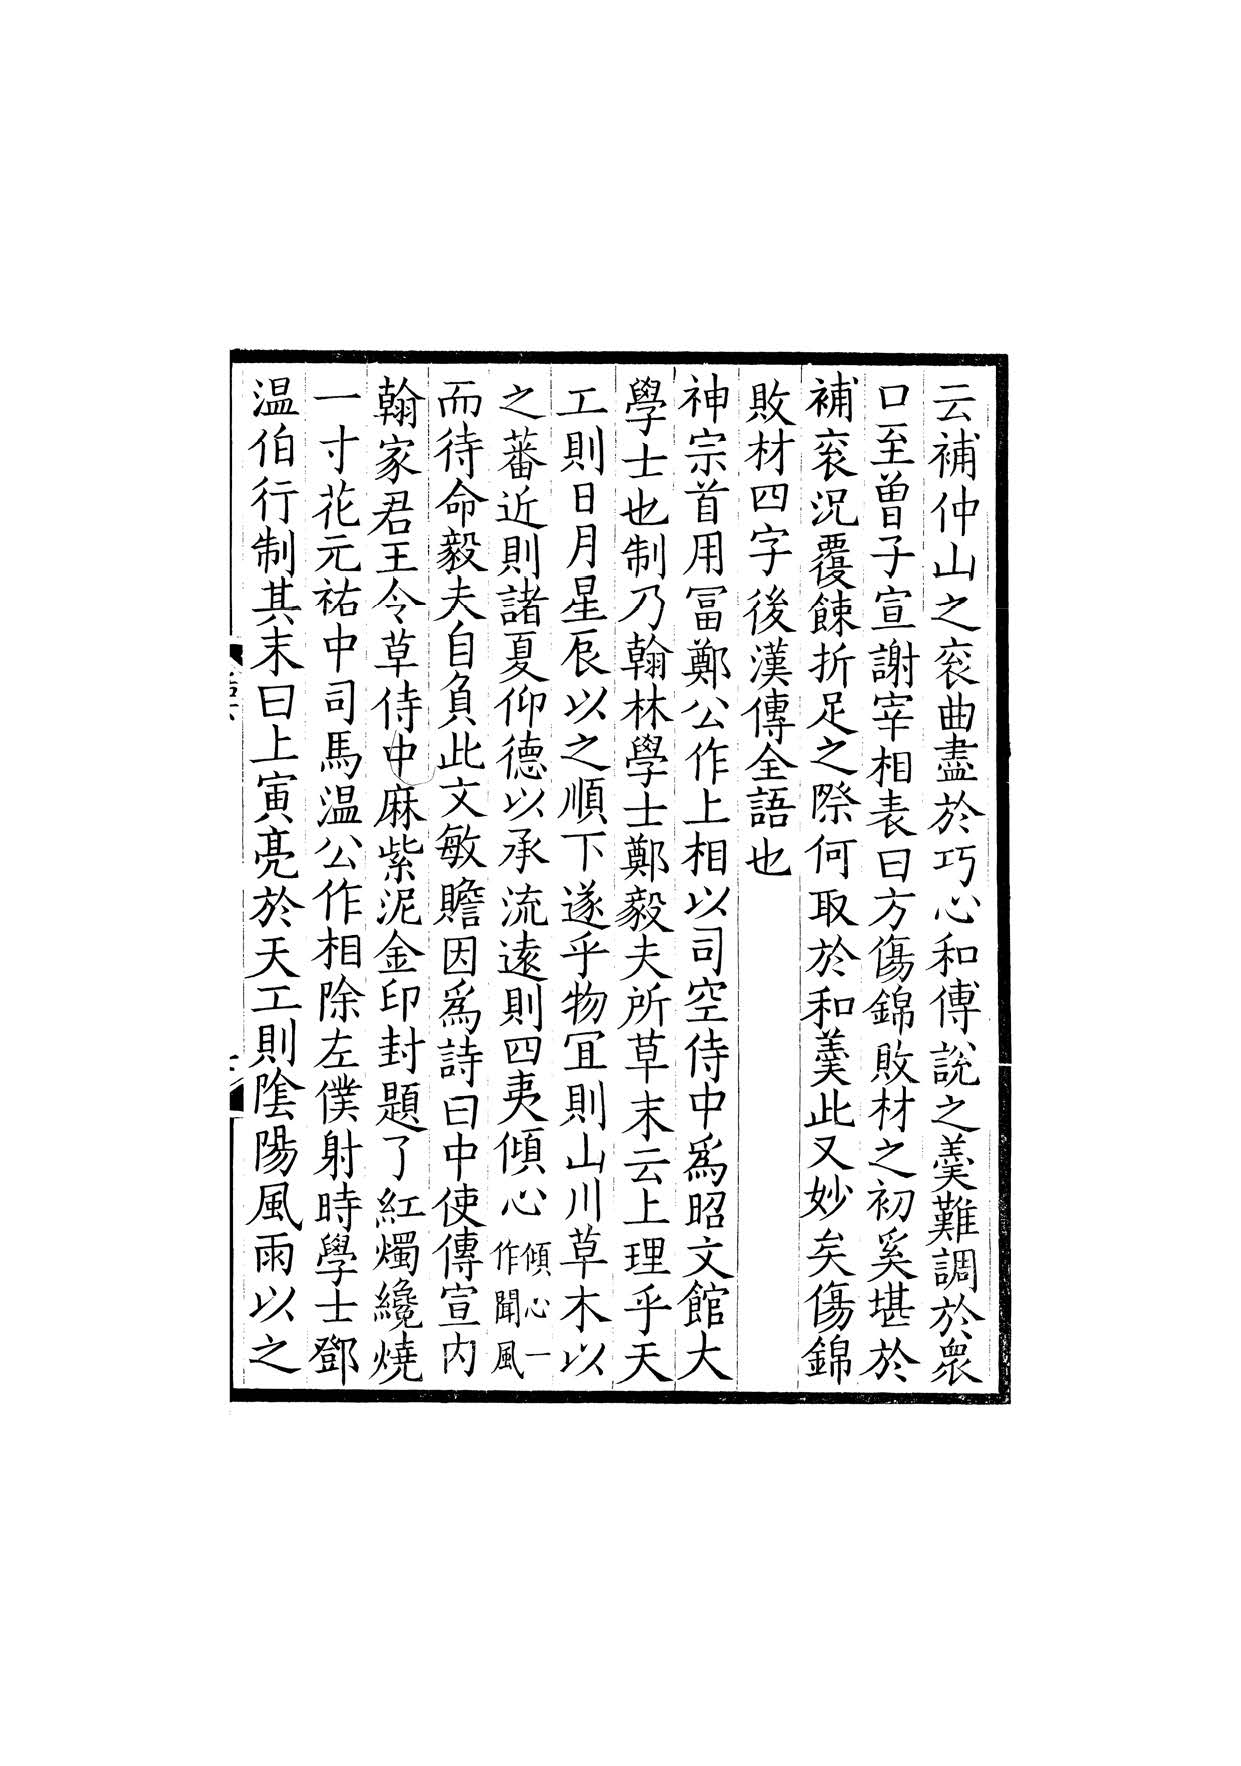 云補仲山之衮曲盡於巧心和傅說之羹難調於衆
口至曾子宣謝宰相表曰方傷錦敗材之初奚堪於
補衮況覆餗折足之際何取於和羹此又妙矣傷錦
敗材四字後漢傳全語也
神宗首用冨鄭公作上相以司空侍中爲昭文館大
學士也制乃翰林學士鄭毅夫所草末云上理乎天
工則日月星辰以之順下遂乎物冝則山川草木以
之蕃近則諸夏仰德以承流逺則四夷傾心傾心一作聞風
而待命毅夫自負此文敏贍因爲詩曰中使傳宣内
翰家君王令草侍中麻紫泥金印封題了紅燭纔燒
一寸花元祐中司馬温公作相除左僕射時學士鄧
温伯行制其末曰上寅亮於天工則隂陽風雨以之